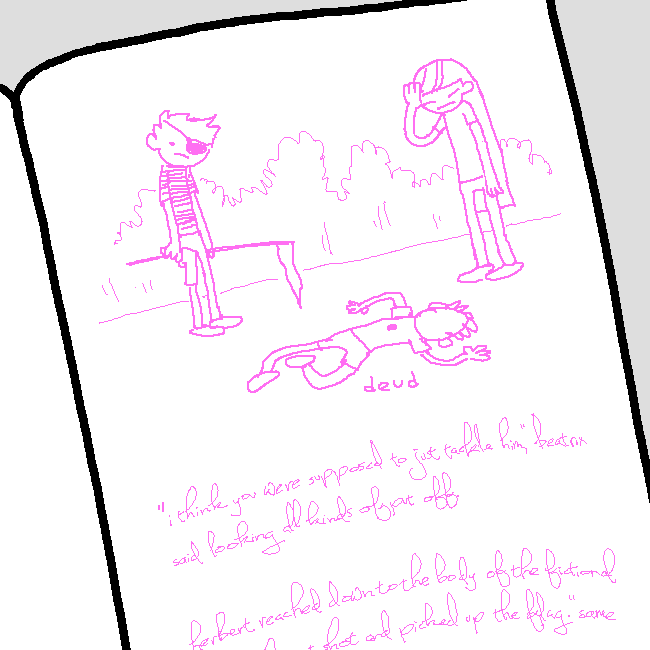 deud
"i think you were supposed to just tackle him," beatrix
said looking all kinds of put off.
herbert reached down to the body of the fictional
shot and picked up the flag. "same